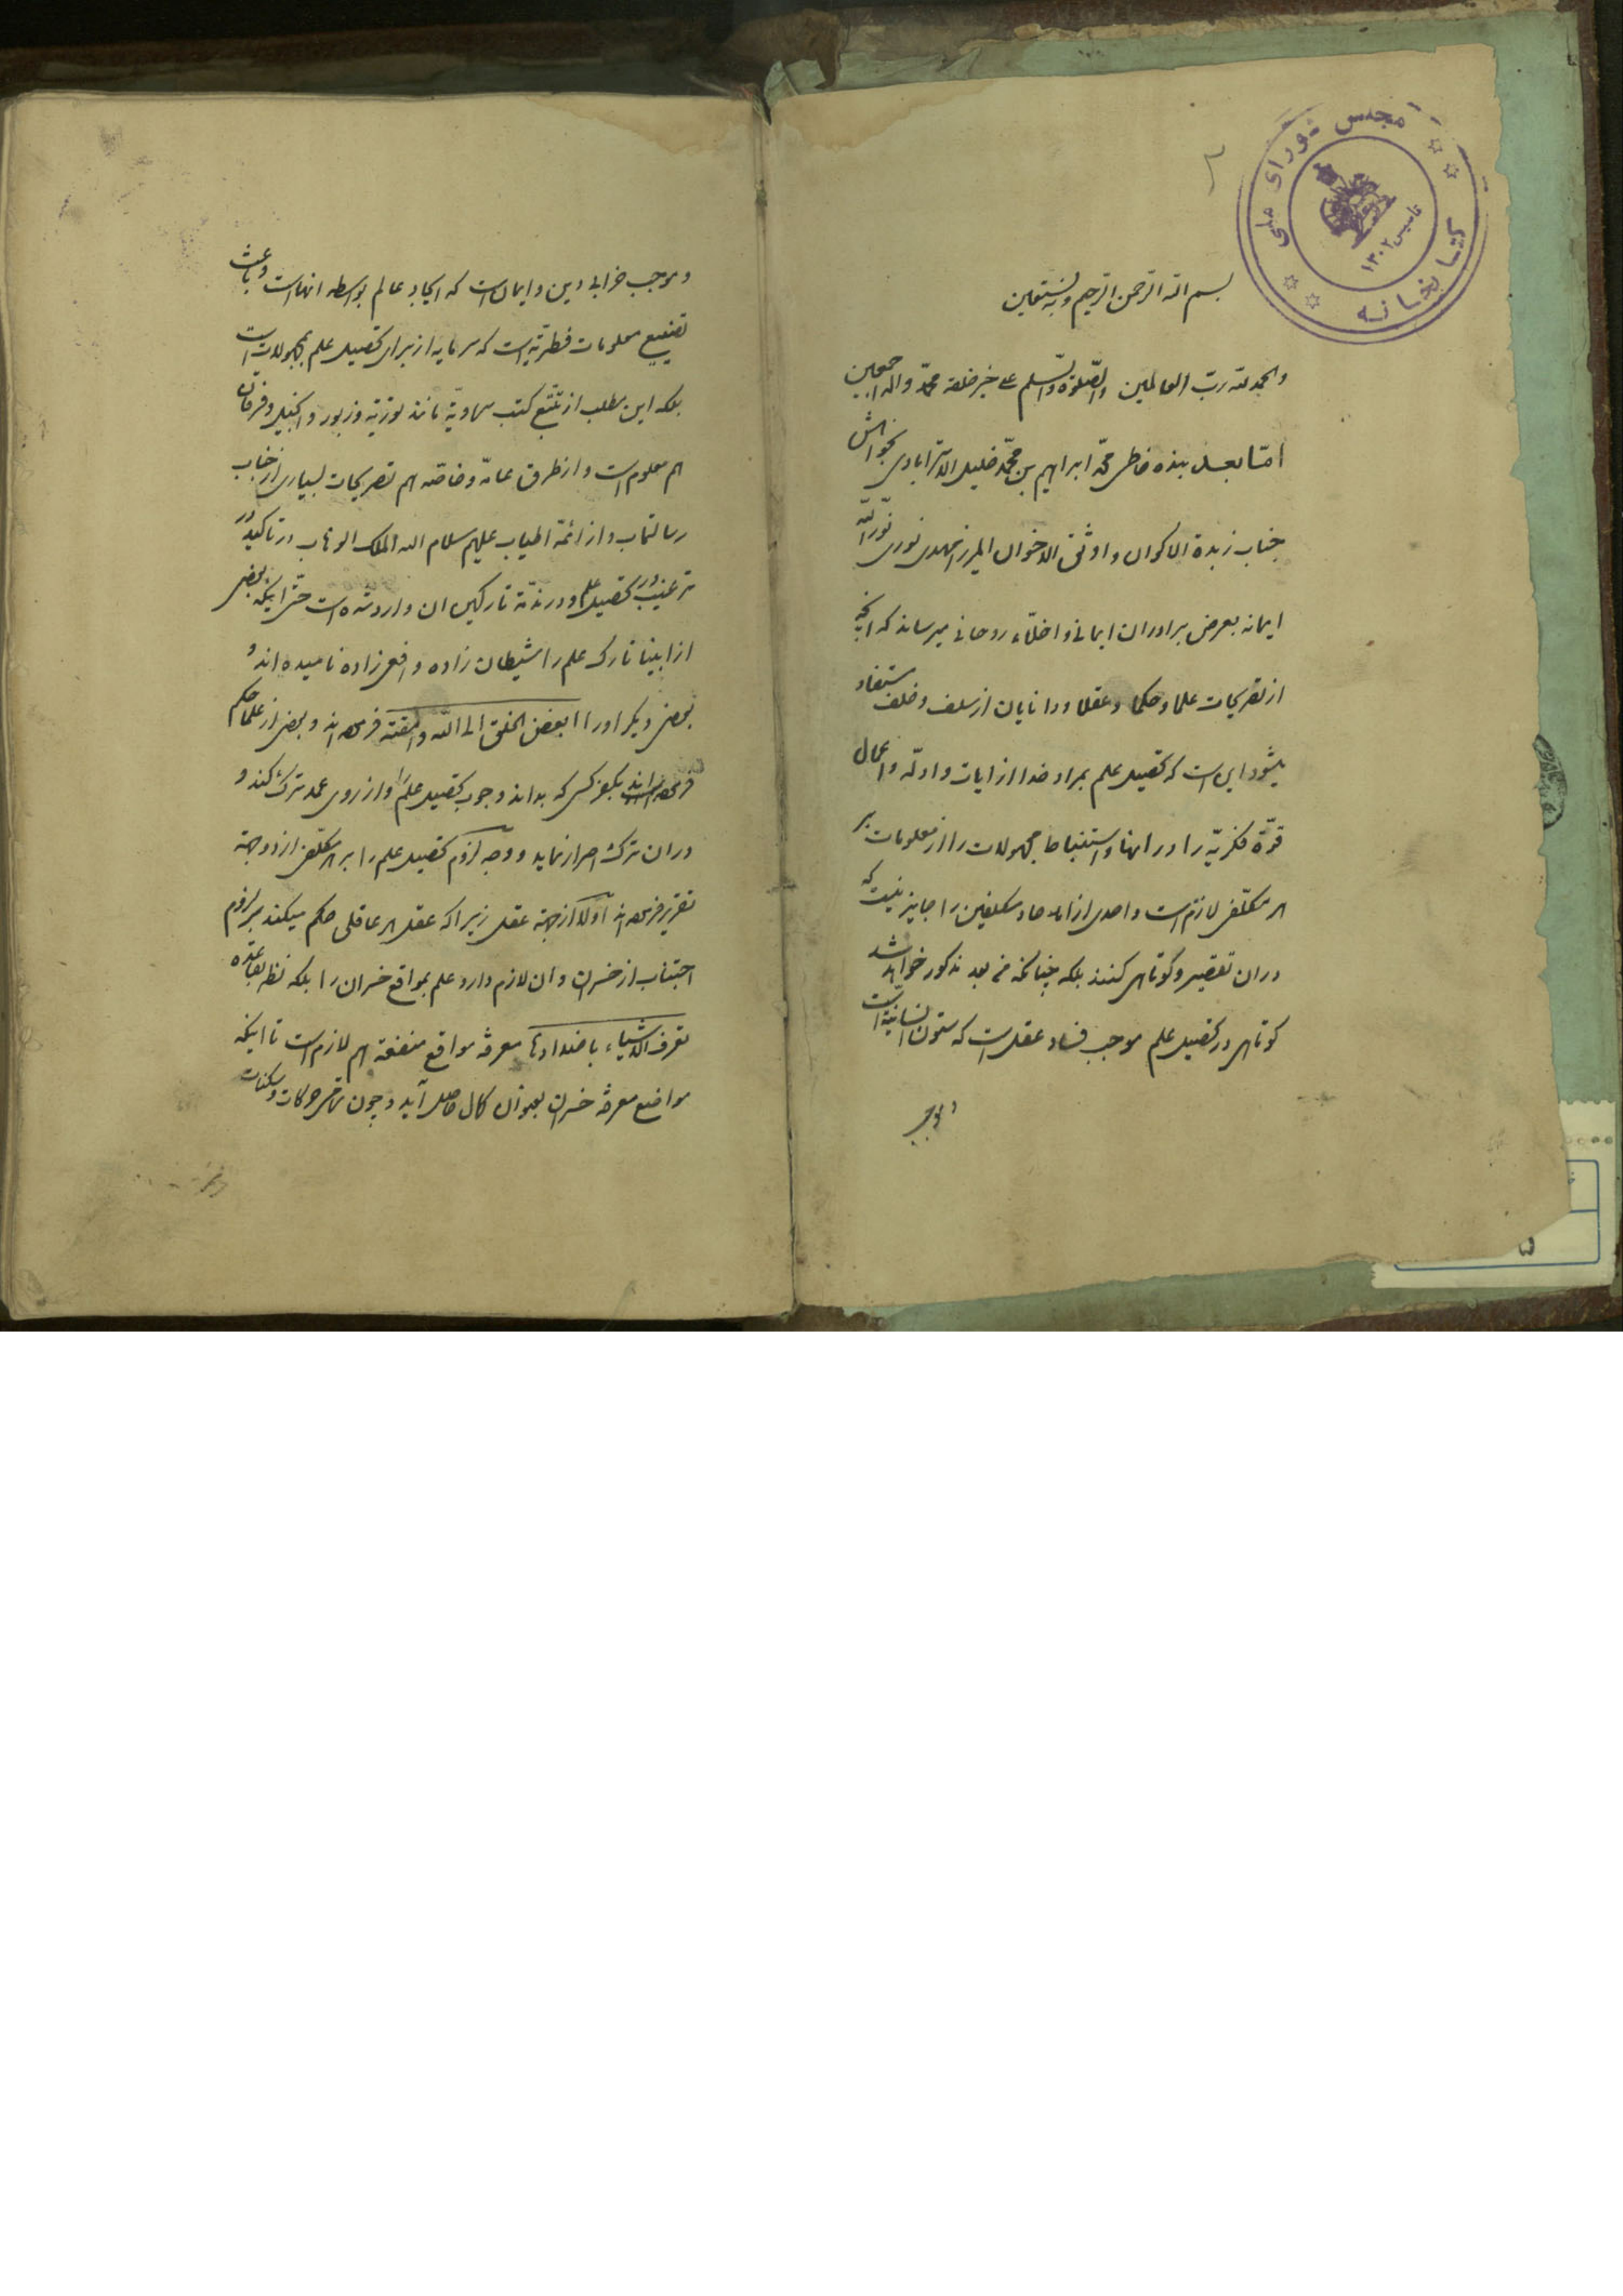 ۲
مجلس شورای ملی
کتابخانه
تاسیس ۱۳۰۲
بسم الله الرحمن الرحیم وبه نستعین
والحمد لله رب العالمین والصلوة والسلم علی خیر خلقه محمد واله اجمعین
اما بعد بنده خاطی محمد ابراهیم بن محمد خلیل الاسترابادی بخواهش
جناب زبدة الاکوان و اوثق الاخوان المیرزا مهدی نوری نور الله
ایمانه بعرض برادران ایمانی و اخلاء روحانی میرساند که آنچه
از تصریحات علما و حکما و عقلا و دانایان از سلف و خلف مستفاد
میشود این است که تحصیل علم بمراد خدا از ایات و ادله و اعمال
قوة فکریه را در انها و استنباط مجهولات را از معلومات بر
هر مکلفی لازم است و احدی از احاد مکلفین را جایز نیست که
دران تقصیر و کوتاهی کنند بلکه چنانکه من بعد مذکور خواهد شد
کوتاهی در تحصیل علم موجب فساد عقل است که ستون انسانیة است
و موجب
و موجب خرابی دین و ایمان است که ایجاد عالم بواسطه انهاست و باعث
تضییع معلومات فطریه است که سرمایه از برای تحصیل علم بمجهولات است
بلکه این مطلب از تتبع کتب سماویة مانند توریة و زبور و انجیل و فرقان
هم معلوم است و از طرق عامه و خاصه هم تصریحات بسیاری از جناب
رسالتماب و از ائمة اطیاب علیهم سلام الله الملک الوهاب در تاکید و
ترغیب در تحصیل علم و در مذمة تارکین ان وارد شده است حتی اینکه بعضی
از انبیا تارک علم را شیطان زاده و افعی زاده نامیده اند و
بعضی دیگر اورا ابغض الخلق الی الله و امقته فرموده اند و بعضی از علما حکم
فرموده اند بکفر کسی که بداند وجوب تحصیل علم را و از روی عمد ترک کند و
دران ترک اصرار نماید و وجه لزوم تحصیل علم را بر هر مکلفی از دو جهة
تقریر فرموده اند اولا از جهة عقل زیرا که عقل هر عاقلی حکم میکند بر لزوم
اجتناب از خسران و ان لازم دارد علم بمواقع خسران را بلکه نظر بقاعده
تعرف الاشیاء باضدادها معرفة مواقع منفعة هم لازم است تا اینکه
مواضع معرفة خسران بعنوان کمال حاصل آید و چون تمامی حرکات و سکنات